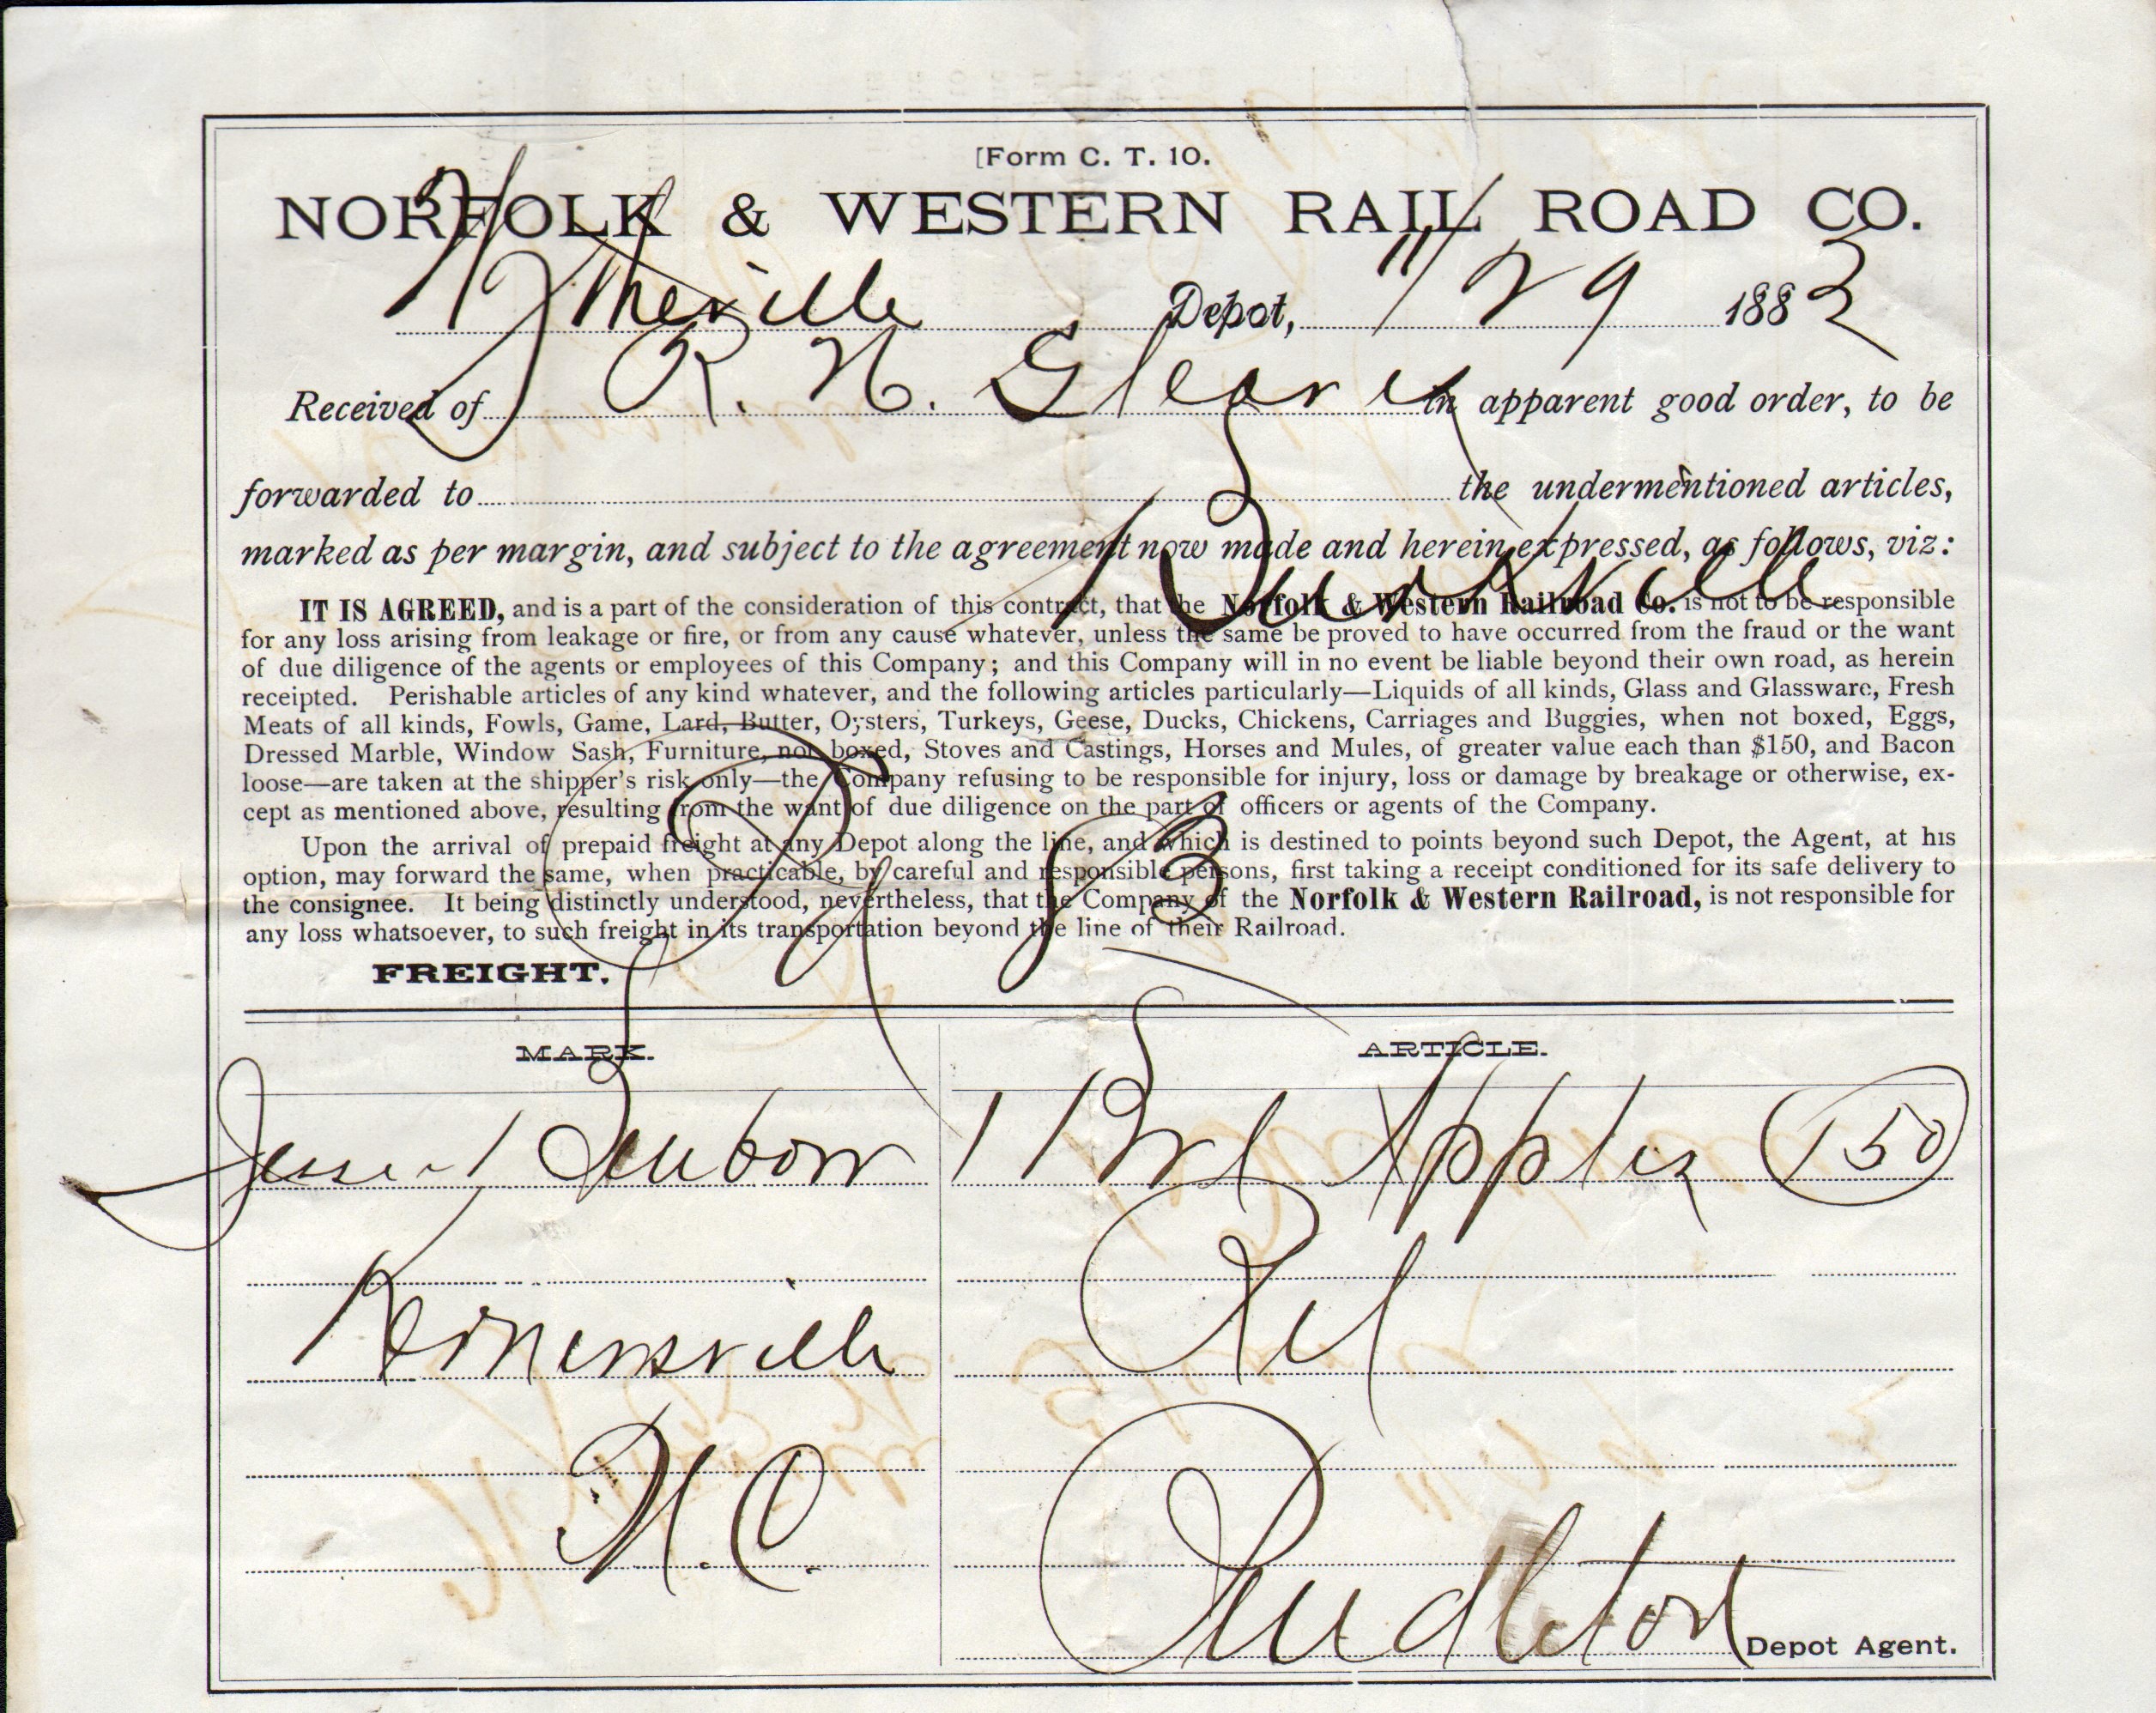 [Form C. T. 10.
NORFOLK & WESTERN RAIL ROAD CO.
Wytheville Depot, 11/29 1883
Received of R. N. in apparent good order, to be
forwarded to the undermentioned articles,
marked as per margin, and subject to the agreement now made and herein expressed, as follows, viz:
Burkville
IT IS AGREED, and is a part of the consideration of this contract, that the Norfolk & Western Railroad Co. is not to be responsible
for any loss arising from leakage or fire, or from any cause whatever, unless the same be proved to have occurred from the fraud or the want
of due diligence of the agents or employees of this Company; and this Company will in no event be liable beyond their own road, as herein
receipted. Perishable articles of any kind whatever, and the following articles particularly—Liquids of all kinds, Glass and Glassware, Fresh
Meats of all kinds, Fowls, Game, Lard, Butter, Oysters, Turkeys, Geese, Ducks, Chickens, Carriages and Buggies, when not boxed, Eggs,
Dressed Marble, Window Sash, Furniture, not boxed, Stoves and Castings, Horses and Mules, of greater value each than $150, and Bacon
loose—are taken at the shipper's risk only—the Company refusing to be responsible for injury, loss or damage by breakage or otherwise, ex-
cept as mentioned above, resulting from the want of due diligence on the part of officers or agents of the Company.
Upon the arrival of prepaid freight at any Depot along the line, and which is destined to points beyond such Depot, the Agent, at his
option, may forward the same, when practicable, by careful and responsible persons, first taking a receipt conditioned for its safe delivery to
the consignee. It being distinctly understood, nevertheless, that the Company of the Norfolk & Western Railroad, is not responsible for
any loss whatsoever, to such freight in its transportation beyond the line of their Railroad.
FREIGHT.
MARK. ARTICLE.
Jesse Benbow 1 Brl Apples 150
Rel
Kernersville
N.C.
Pendleton Depot Agent.